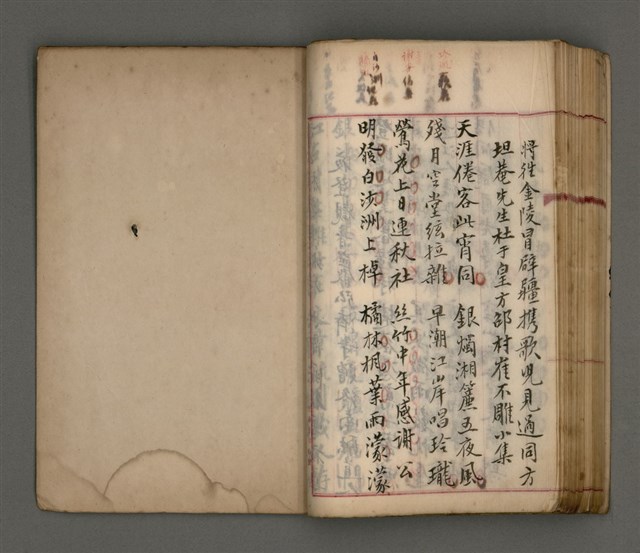 將往金陵冒辟疆携歌児見過同方
坦菴先生杜于皇方邵村崔不雕小集
天涯倦客此宵同 銀燭湘簾五夜風
殘月空堂絃拉雜 早潮江岸唱玲瓏
鶯花上日連秋社 絲竹中年感謝公
明發白沙洲上棹 橘林楓葉雨濛濛